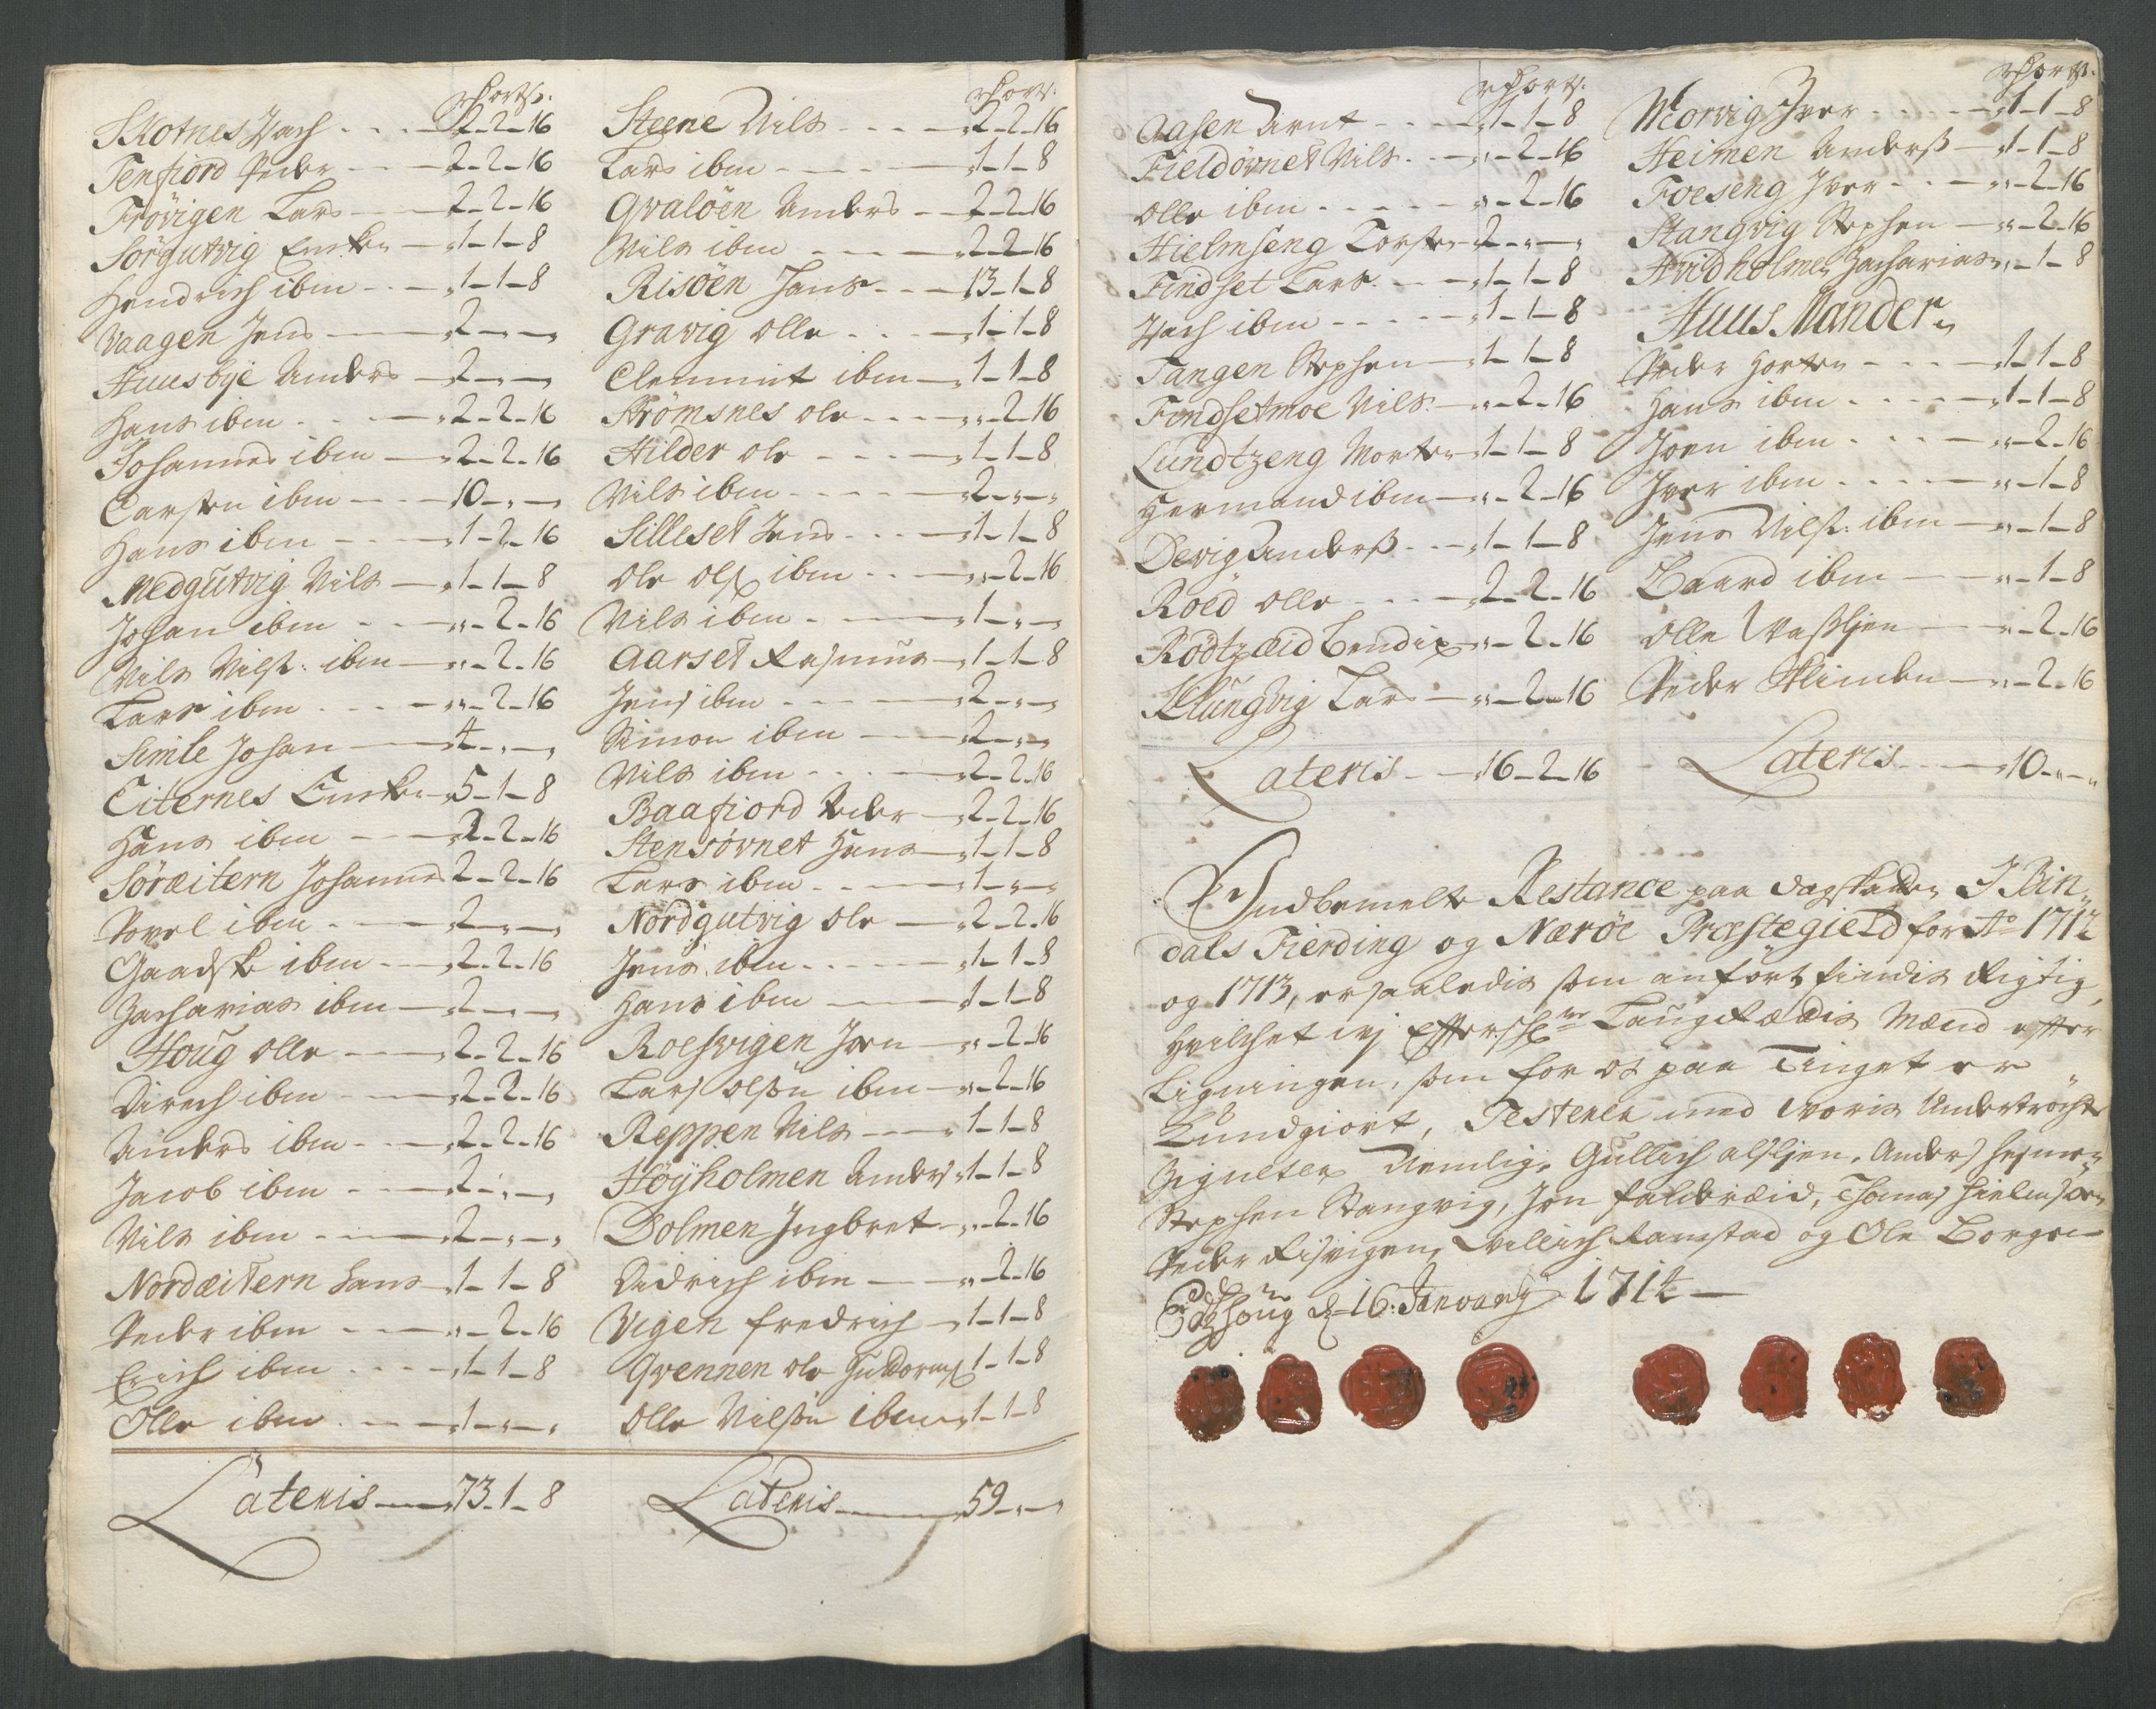 Skotnes Zach - - - 2 - 2 - 16
Tenfiord Peder - - 2 - 2 - 16
Frövigen Lars - - 2 - 2 - 16
Sörgutvig - 1 - 1 - 8
Hendrich ibm - - - 1 - 1 - 8
Vaagen Jens - 2 - " - "
Huusbye Anders - 2 - " - "
Hans ibm - - - 2 - 2 - 16
Johannes ibm - 2 - 2 - 16
Carsten ibm - - - 10 - " - "
Hans ibm - - - 1 - 2 - 16
Medgutvig Nils - 1 - 1 - 8
Johan ibm - - - " - 2 - 16
Nils Nilß: ibm - " - 2 - 16
Lars ibm - - - " - 2 - 16
Simle Johan - 4 - " - "
Eiternes - 5 - 1 - 8
Hans ibm - - - 2 - 2 - 16
Söræitern Johannes 2 - 2 - 16
Povel ibm - - 2 - " - "
ibm - - 2 - 2 - 16
Zacharias ibm - 2 - " - "
Houg Olle - - 2 - 2 - 16
Dirich ibm - - 2 - 2 - 16
Anders ibm - - - 2 - 2 - 16
Jacob ibm - - - 2 - " - "
Nils ibm - - 2 - " - "
Nordæitern Hans - 1 - 1 - 8
Peder ibm - - - " - 2 - 16
Erich ibm - - - 1 - 1 - 8
Olle ibm - - - 1 - " - "
Lateris - 73 - 1 - 8
Steene Nils - - - 2 - 2 - 16
Lars ibm - - - - 1 - 1 - 8
Qvalöen Anders - - 2 - 2 - 16
Nils ibm - - - 2 - 2 - 16
Risöen Hans - - 13 - 1 - 8
Gravig Olle - - - 1 - 1 - 8
Clemmit ibm - 1 - 1 - 8
Strömsnes Ole - - - " - 2 - 16
Hilder Ole - - - - 1 - 1 - 8
Nils ibm - - - - 2 - " - "
Silleset Jens - - - 1 - 1 - 8
Ole Olß ibm - - - " - 2 - 16
Nils ibm - - 1 - " - "
Aarset Rasmus - 1 - 1 - 8
Jens ibm - - - 2 - " - "
Simon ibm - - 2 - " - "
Nils ibm - - - 2 - 2 - 16
Baafiord Peder - 2 - 2 - 16
Stensövnet Hans - 1 - 1 - 8
Lars ibm - - - 1 - " - "
Nordgutvig Ole - 2 - 2 - 16
Jens ibm - - - - 1 - 1 - 8
Hans ibm - - 1 - 1 - 8
Roesvigen Joen - " - 2 - 16
Lars Olsön ibm - " - 2 - 16
Reppen Nils - - 1 - 1 - 8
Höyholmen Anders 1 - 1 - 8
Dolmen Ingbret - " - 2 - 16
Didrich ibm - - " - 2 - 16
Vigen Fredrich - 1 - 1 - 8
Qvennen Ole 1 - 1 - 8
Olle Nilsön ibm - 1 - 1 - 8
Lateris - 59 - " - "
Aasen Arnt - - - 1 - 1 - 8
Fieldövnet Nils - - " - 2 - 16
Olle ibm - - - - " - 2 - 16
Hielmseng Torsten 2 - " - "
Findset Lars - - - 1 - 1 - 8
Zach ibm - - - - 1 - 1 - 8
Tangen Stephen - 1 - 1 - 8
Findsetmoe Nils - " - 2 - 16
Lundtzeng Morten 1 - 1 - 8
Hermand ibm - " - 2 - 16
Devig Anderß - - - 1 - 1 - 8
Roed Olle - - - 2 - 2 - 16
Rödtzæid Bendix " - 2 - 16
Klungvig Lars - " - 2 - 16
Lateris - - 16 - 2 - 16
Morvig Iver - - - - 1 - 1 - 8
Heimen Anderß - 1 - 1 - 8
Foeseng Iver - - - " - 2 - 16
Stangvig Stephen - " - 2 - 16
Hvidholmen Zacharias " - 1 - 8
Huus Mænder
Peder Horten - - - 1 - 1 - 8
Hans ibm - - - - 1 - 1 - 8
Joen ibm - - - - " - 2 - 16
Iver ibm - - - - " - 1 - 8
Jens Nilß: ibm - " - 1 - 8
Baard ibm - - " - 1 - 8
Olle - " - 2 - 16
Peder - " - 2 - 16
Lateris - - 10 - " - "
Indbemelte Restance paa Dagskatten I Bin-
dals Fierding og Nærøe Præstegield for Ao 1712
og 1713, er saaledis som anført findis Rigtig,
hvilchet vj Effterschrne LaugRædis Mænd effter
Ligningen, som for os paa Tinget er
Kundgiort, Testerer med voris Undertröchte
Zigneter Nemlig. Gullich Alsljen, Anders Hejmen
Stephen Stangvig, Jon Falderæid, Thomas
Peder Risvigen, Villich Ramstad og Ole Borgen
d 16. Januarij 1714 -